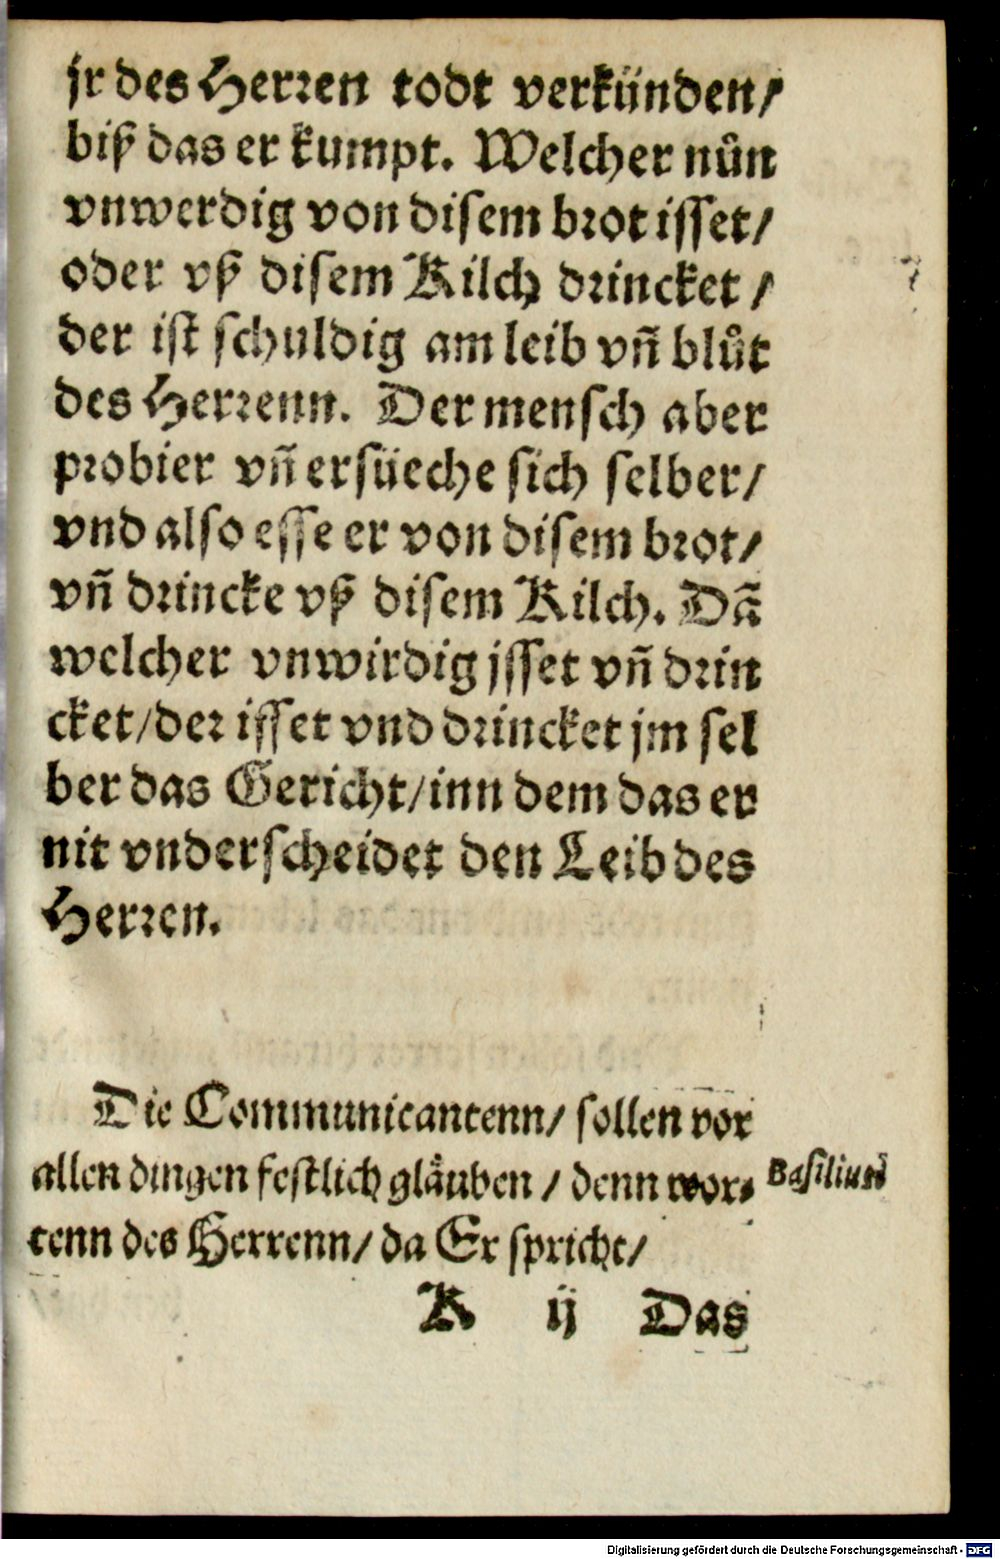 jr des Herren todt verkünden/
biß das er kumpt. Welcher nůn
vnwerdig von disem brot isset/
oder vß disem Kilch drincket/
der ist schuldig am leib vñ blůt
des Herrenn. Der mensch aber
probier vñ ersüeche sich selber/
vnd also esse er von disem brot/
vñ drincke vß disem Kilch. Dañ
welcher vnwirdig jsset vñ drin
cket/der isset vnd drincket jm sel
ber das Gericht/inn dem das er
nit vnderscheidet den Leib des
Herren.
Die Communicantenn/ sollen vor
allen dingen festlich glauben/ denn wor⸗
Basilius
tenn des Herrenn/ da Er spricht/
K ij Das
Digitalisierung gefördert durch die Deutsche Forschungsgemeinschaft - DFG